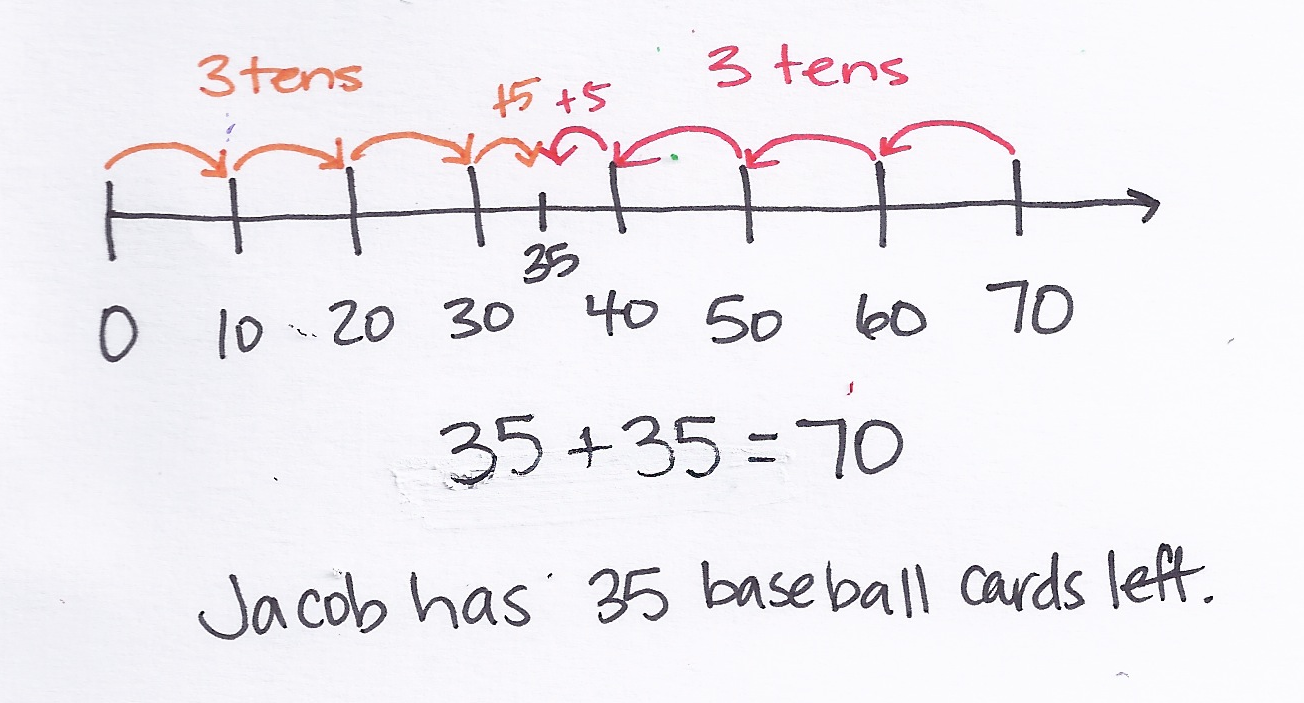 3 tens +5 +5 3 tens
35
0 10 20 30 40 50 60 70
35 + 35 = 70
Jacob has 35 baseball cards left.